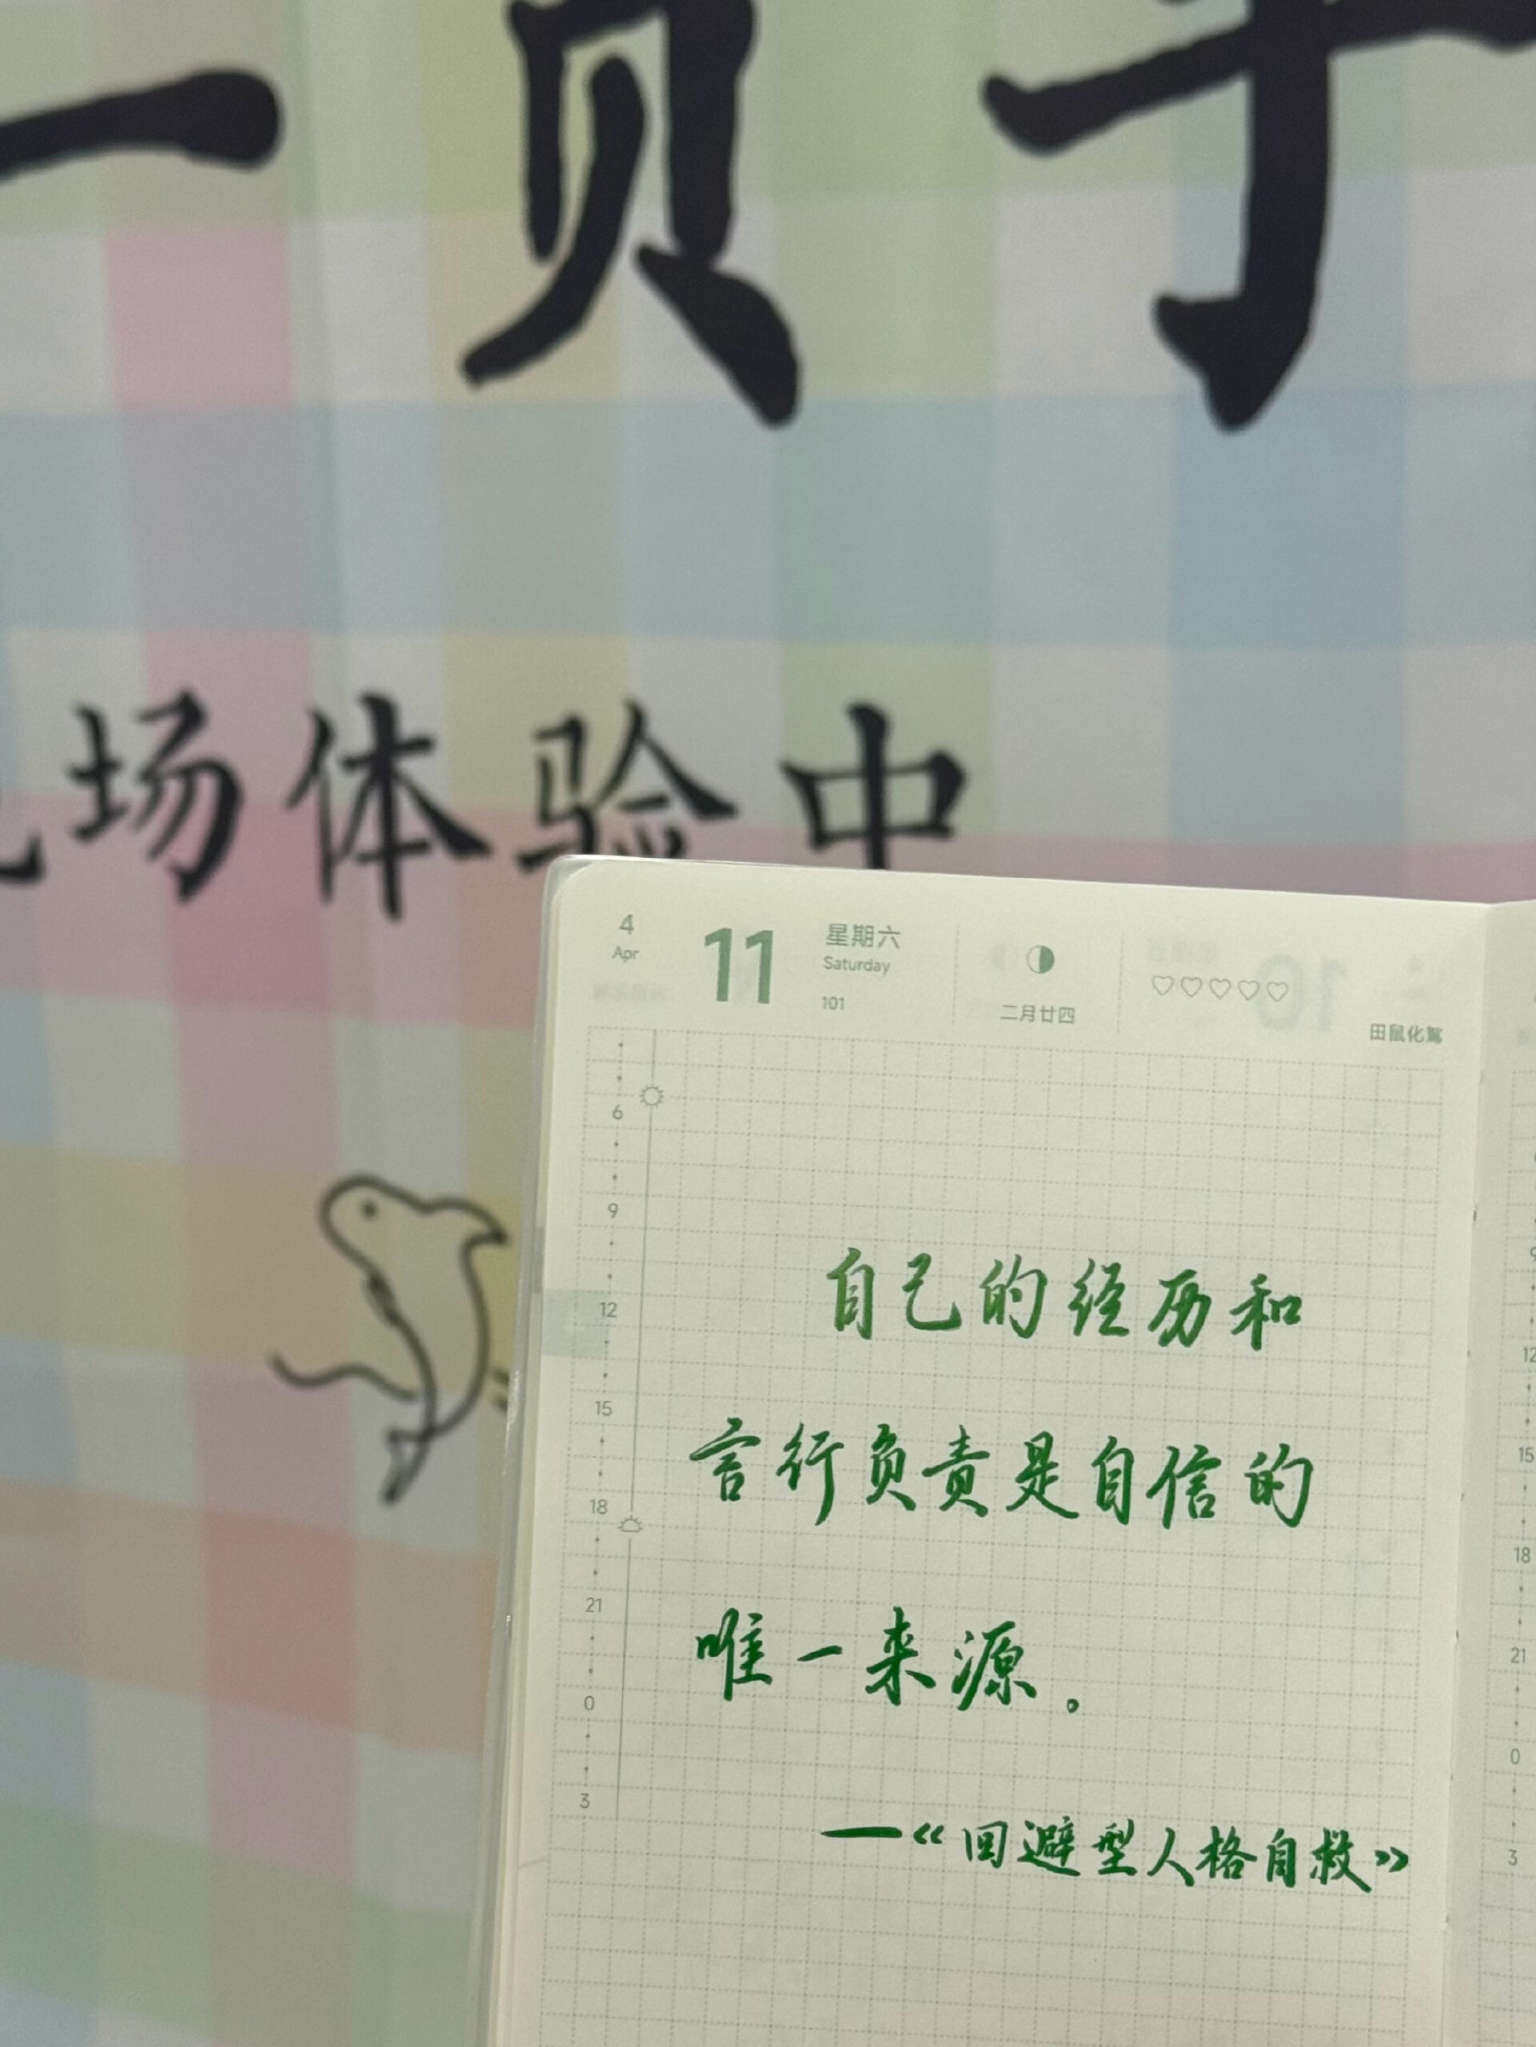 一页手
场体验中
4
Apr
11
星期六
Saturday
101
二月廿四
田鼠化鴽
6
9
12
15
18
21
0
3
自己的经历和
言行负责是自信的
唯一来源。
—《回避型人格自救》
9
12
15
18
21
0
3